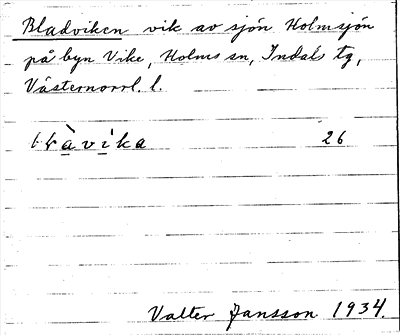 Bladviken vik av sjön Holmsjön
på byn Vike, Holms sn, Indals tg,
Västernorrl. l.
26
Valter Jansson 1934.